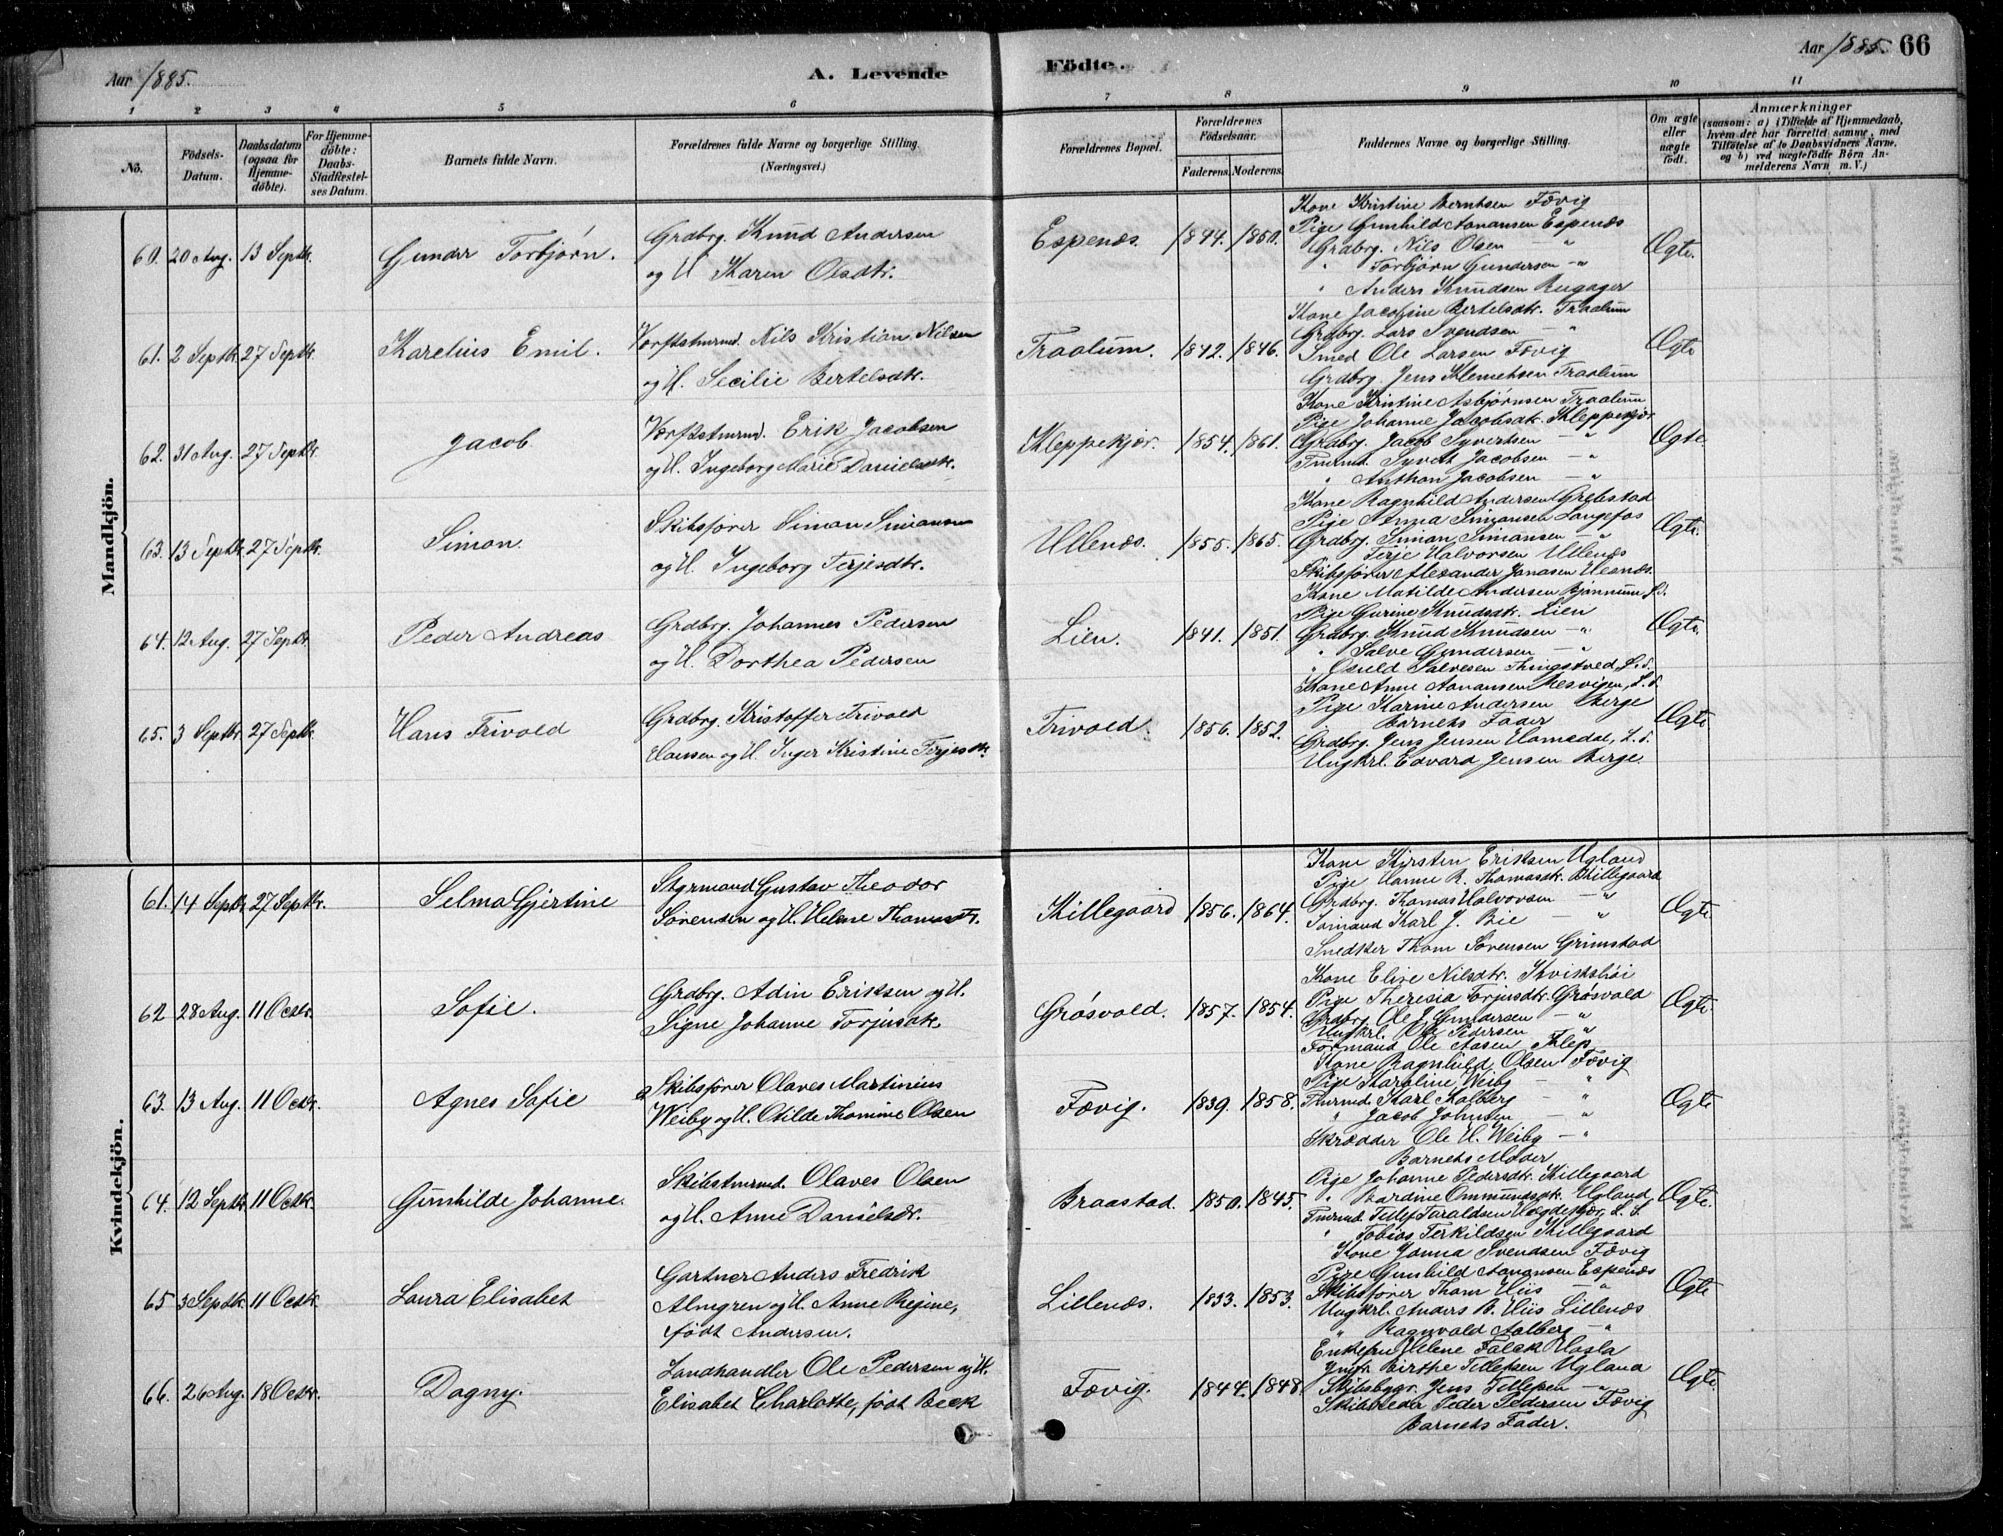 Aar 1885.
A. Levende
Födte.
Aar 1885. 66
1 2 3 4 5 6 7 8 9 10 11
No.
Födsels-Datum.
Daabsdatum (ogsaa for Hjemme-döbte).
For Hjemme-döbte: Daabs-Stadfæstelses Datum.
Barnets fulde Navn.
Forældrenes fulde Navne og borgerlige Stilling. (Næringsvei.)
Forældrenes Bopæl.
Forældrenes Födselsaar.
Faderens. Moderens.
Faddernes Navne og borgerlige Stilling.
Om ægte eller uægte födt.
Anmærkninger
(saasom: a) i Tilfælde af Hjemmedaab,
hvem der har forrettet samme, med
Tilföielse af to Daabsvidners Navne,
og b) ved uægtefödte Börn An-
melderens Navn m. V.)
Mandkjön.
60. 20 Aug. 13 Septbr. Gunder Torbjørn.
Grdbrg. Knud Andersen
og H. Karen Olsdtr.
Espenæs. 1844. 1850.
Kone Kristine Berntsen Fævig
Pige Gunhild Aanansen Espenæs
Grdbrg. Nils Olsen — "
" Torbjørn Gundersen — "
" Anders Knudsen Rugager
Ægte.
61. 2 Septbr. 27 Septbr. Karelius Emil.
Værftstmrmd. Nils Kristian Nilsen
og H. Secilie Bertelsdtr.
Traalum. 1842. 1846.
Kone Jacobine Bertelsdtr. Traalum
Grdbrg. Lars Svendsen — "
Smed Ole Larsen Fævig
Grdbrg. Jens Klemetsen Traalum
Kone Kristine Asbjørnsen Traalum
Ægte
62. 31 Aug. 27 Septbr. Jacob
Værftstmrmd. Erik Jacobsen
og H. Ingeborg Marie Danielsdtr.
Kleppekjær. 1854. 1861.
Pige Johanne Jacobsdtr. Kleppekjær
Grdbrg. Jacob Syvertsen — "
Tmrmd. Syvert Jacobsen — "
" Anthon Jacobsen — "
Ægte.
63. 13 Septbr. 27 Septbr. Simon.
Skibsfører Simon Simonsen
og H. Ingeborg Terjesdtr.
Ullenæs. 1855. 1865.
Kone Ragnhild Andersen Grebstad
Pige Anna Simonsen Langefos
Grdbrg. Simon Simonsen — "
Terje Halvorsen Ullenæs
Skibsfører Alexander Jonasen Hesnæs.
Ægte.
64. 12 Aug. 27 Septbr. Peder Andreas
Grdbrg. Johannes Pedersen
og H. Dorthea Pedersen
Lien. 1841. 1851.
Kone Matilde Andersen Bjønnum L.S.
Pige Gurine Knudsdtr. Lien
Grdbrg. Knud Knudsen — "
" Salve Gundersen — "
" Osuld Salvesen Thingstved, L.S.
Ægte.
65. 3 Septbr. 27 Septbr. Hans Trivold
Grdbrg. Kristoffer Trivold
Hansen og H. Inger Kristine Terjesdtr.
Trivold. 1856. 1852.
Kone Anne Aanansen Resvigen, L.S.
Pige Karine Andersen Berge
Barnets Fader
Grdbrg. Jens Jensen Homedal, L.S.
Ungkrl. Edvard Jensen Berge
Ægte.
Kvindekjön.
61. 14 Septbr. 27 Septbr. Selma Gjertine
Styrmand Gustav Theodor
Sørensen og H. Helene Thomasdtr.
Killegaard 1856. 1864.
Kone Kirsten Eriksen Ugland
Pige Hanne R. Thomasdtr. Killegaard
Grdbrg. Thomas Halvorsen — "
Sømand Karl J. Bie — "
Snedker Thom Sørensen Grimstad
Ægte.
62 28 Aug. 11 Octbr. Sofie.
Grdbrg. Adin Eriksen og H.
Signe Johanne Torjusdtr.
Grøsvold. 1857. 1854.
Kone Elise Nilsdtr. Kvikshöi
Pige Theresia Torjusdtr. Grøsvold
Grdbrg. Ole J. Gundersen — "
Ungkrl. Ole Pedersen "
Formand Ole Aasen Klep
Ægte.
63. 13 Aug. 11 Octbr. Agnes Sofie
Skibsfører Olaves Martinius
Weiby og H. Otilde Thomine Olsen
Fævig. 1839. 1858.
Kone Ragnhild Olsen Fævig
Pige Karoline Weiby — "
Tmrmd. Karl Kolberg — "
" Jacob Johnsen — "
Skrædder Ole H. Weiby — "
Ægte.
64. 12 Septbr. 11 Octbr. Gunhilde Johanne.
Skibstmrmd. Olaves Olsen
og H. Anne Danielsdtr.
Braastad. 1850. 1845.
Barnets Moder
Pige Johanne Pedersdtr. Killegaard
" Bardine Ommundsdtr. Ugland
Tmrmd. Tellef Taraldsen Høgdekjær, L.S.
" Tobias Terkildsen Killegaard
Ægte.
65 3 Septbr. 11 Octbr. Laura Elisabet
Gartner Anders Fredrik
Almgren og H. Anne Regine,
født Andersen.
Lillenæs. 1833. 1853.
Kone Janna Svendsen Fævig
Pige Gunhild Aanansen Espenæs
Skibsfører Thom Hiis — "
Ungkrl. Anders B. Hiis Lillenæs
" Ragnvald Aalberg — "
Ægte
66. 26 Aug. 18 Octbr. Dagny.
Landhandler Ole Pedersen og H.
Elisabet Charlotte, født Beck
Fævig. 1844. 1848.
Enkefru Helene Falck Hasla
Jmfr. Birthe Tellefsen Ugland
Skibsbygr. Jens Tellefsen — "
Skibsreder Peder Pedersen Fævig
Barnets Fader.
Ægte.